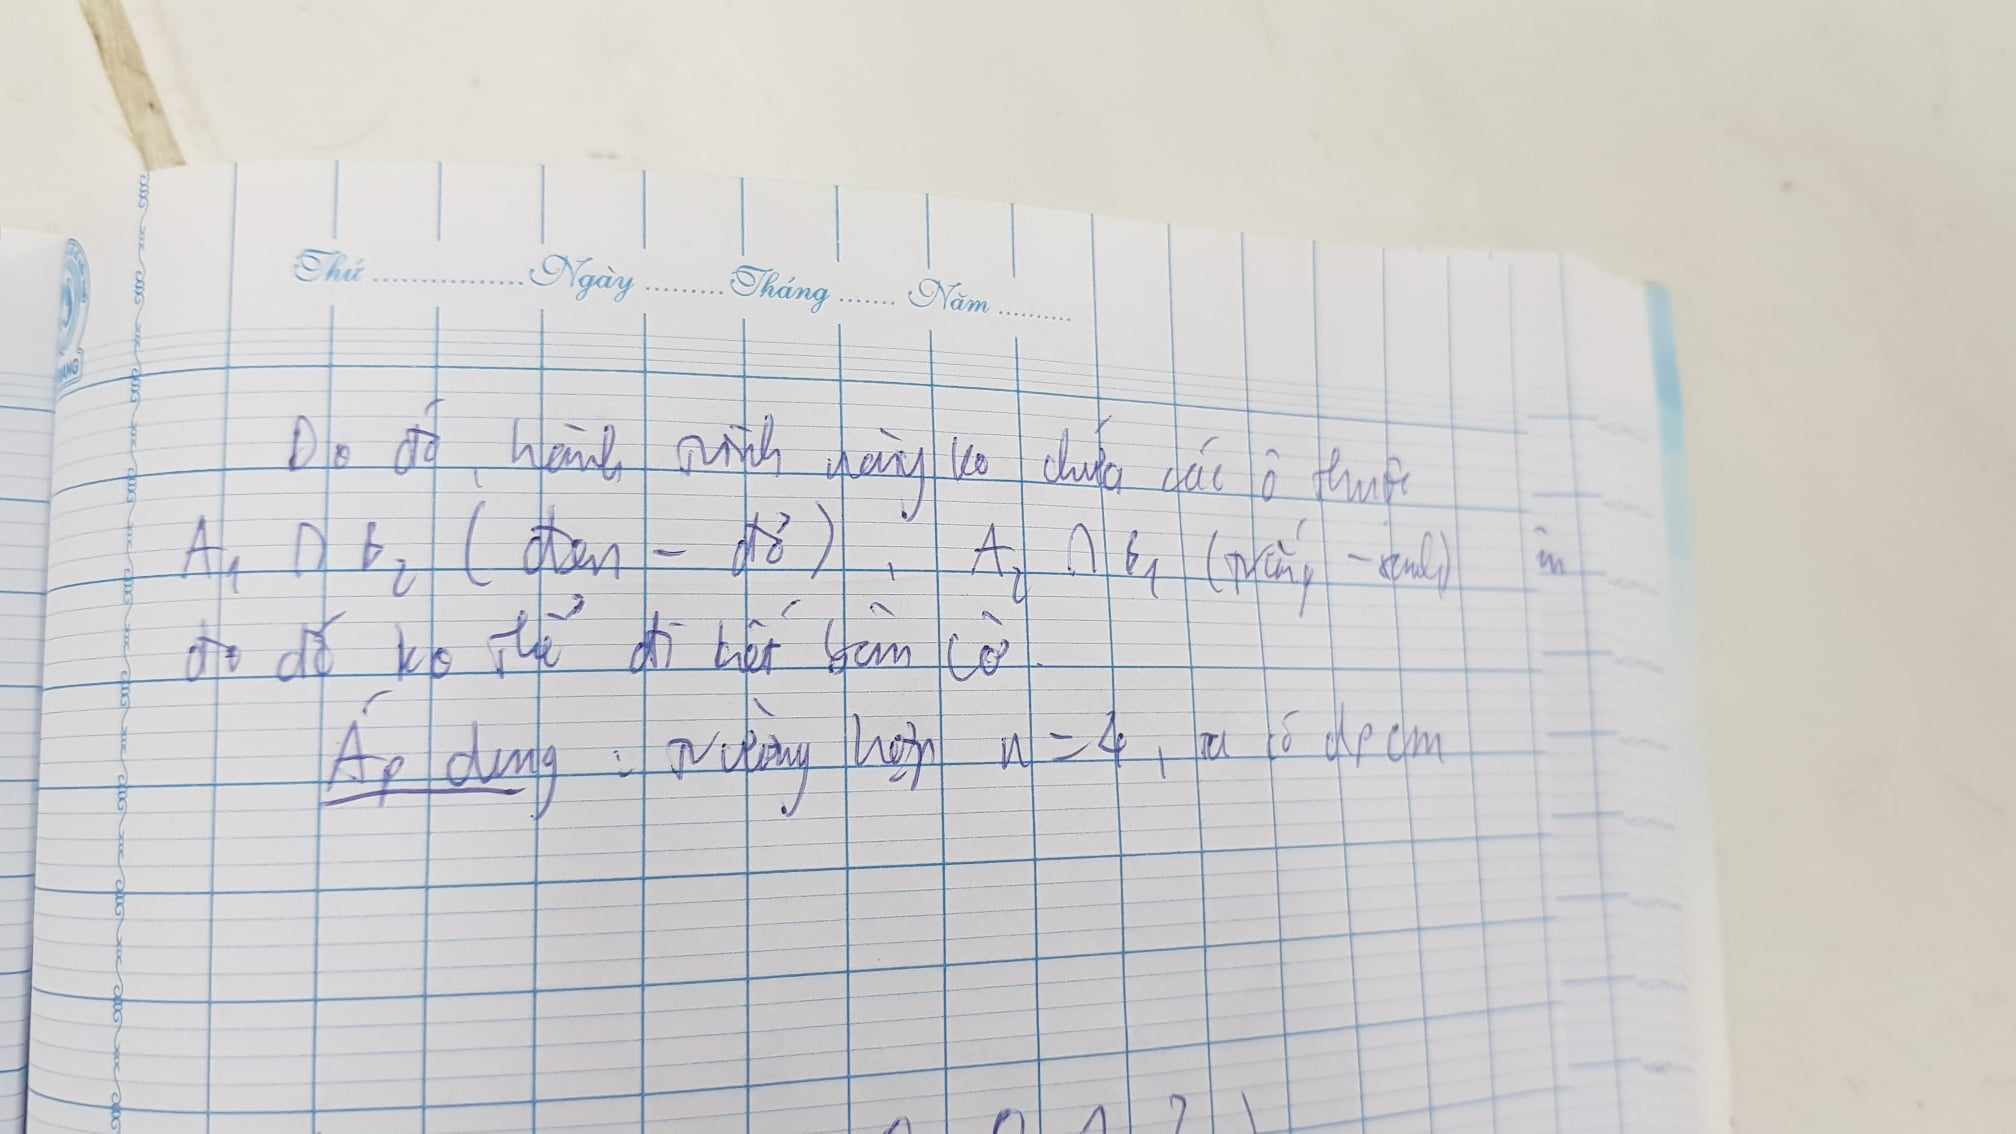 Thứ ............... Ngày ......... Tháng ....... Năm ..........
Do đó, hành trình này ko chứa các ô thuộc
A₁ ∩ B₂ (đen - đỏ), A₂ ∩ B₁ (trắng - xanh)
do đó ko thể đi hết bàn cờ.
Áp dụng : trường hợp n = 4, ta có đpcm